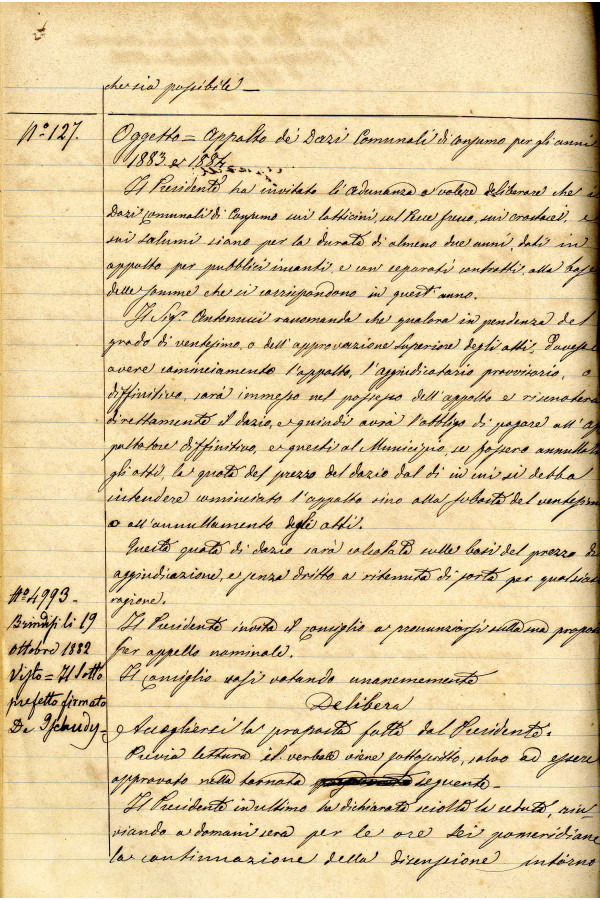 che sia possibile —
N.º 127.
Oggetto = Appalto de' Dazi Comunali di Consumo per gli anni
1883 e 1884
Il Presidente ha invitato l'adunanza a volere deliberare che i
Dazi Comunali di Consumo sui latticini, sul Pesce fresco, sui crostacei, e
sui salumi siano per la durata di almeno due anni, dati in
appalto per pubblici incanti, e con separati contratti, alla base
delle somme che si corrispondono in quest'anno.
Il Sig.r Antonucci raccomanda che qualora in pendenza del
grado di ventesimo, o dell'approvazione Superiore degli atti, dovesse
avere cominciamento l'appalto, l'aggiudicatario provvisorio, o
diffinitivo, sarà immesso nel possesso dell'appalto e riscuoterà
direttamente il dazio, e quindi avrà l'obbligo di pagare all'Ap
paltatore diffinitivo, e questi al Municipio, se fossero annullati
gli atti, la quota del prezzo del dazio dal dì in cui si debba
intendere cominciato l'appalto sino alla subasta del ventesimo
o all'annullamento degli atti.
Questa quota di dazio sarà calcolata sulle basi del prezzo di
aggiudicazione, e senza dritto a ritenuta di sorta per qualsiasi
ragione.
Il Presidente invita il Consiglio a pronunziarsi sulla sua proposta
per appello nominale.
Il Consiglio così votando unanemente
Delibera
Accogliersi la proposta fatta dal Presidente.
Previa lettura il verbale viene sottoscritto, salvo ad essere
approvato nella tornata seguente —
Il Presidente in ultimo ha dichiarata sciolta la seduta, rin-
viando a domani sera per le ore sei pomeridiane
la continuazione della discussione intorno
N.º 4993 -
Brindisi li 19
Ottobre 1882
Visto = Il Sotto
prefetto firmato
De